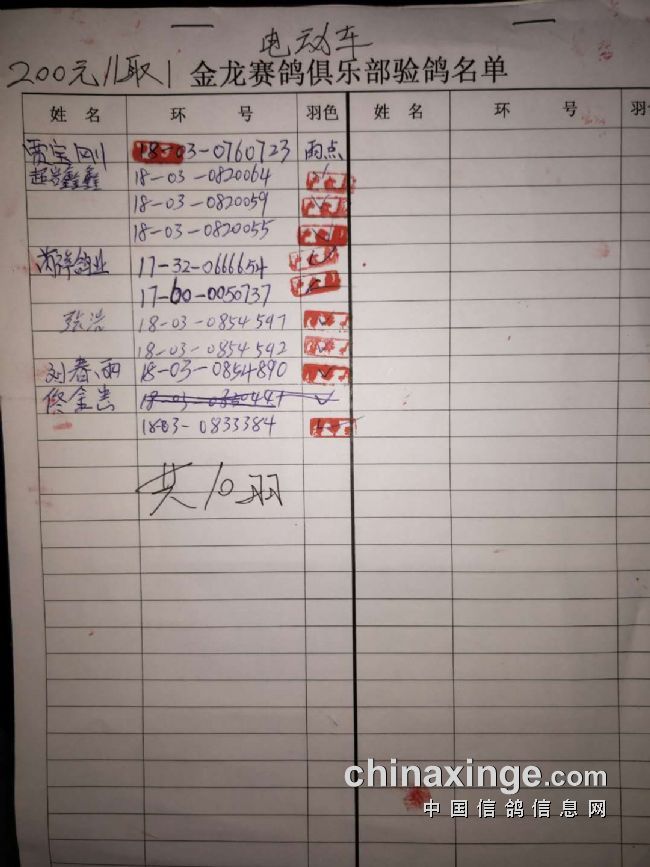 电动车
200元 取1 金龙赛鸽俱乐部验鸽名单
姓 名 环 号 羽色 姓 名 环 号 羽
贾宝刚 18-03-0760723 雨点
鑫鑫 18-03-0820064
18-03-0820059
18-03-0820055
鸽业 17-32-0666654
17-60-0050737
张浩 18-03-0854597
18-03-0854592
刘春雨 18-03-0854890
佟金
18-03-0833384
共10羽
chinaxinge.com
中国信鸽信息网